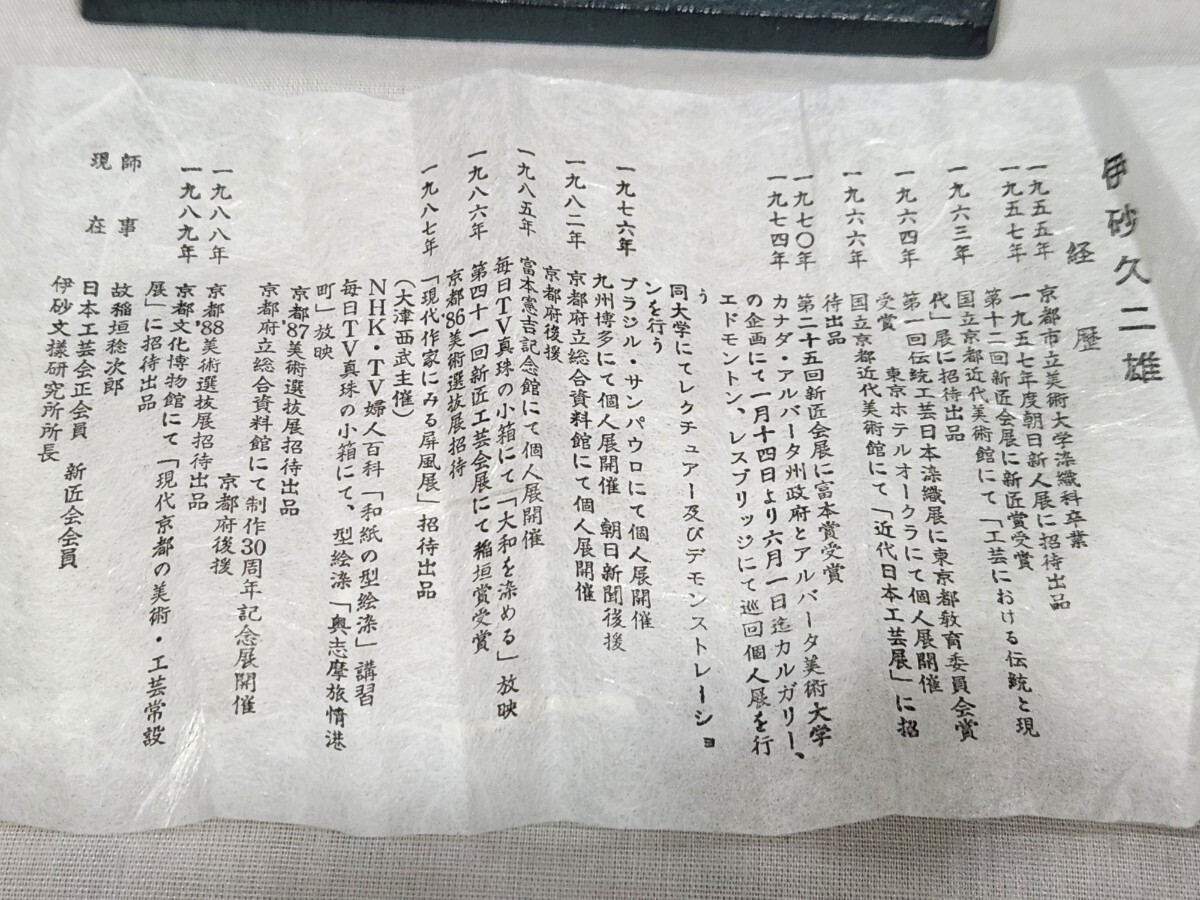 伊砂久二雄
経歴
一九五五年 京都市立美術大学染織科卒業
一九五七年 一九五七年度朝日新人展に招待出品
第十二回新匠会展に新匠賞受賞
一九六三年 国立京都近代美術館にて「工芸における伝統と現
代」展に招待出品
一九六四年 第一回伝統工芸日本染織展に東京都教育委員会賞
受賞 東京ホテルオークラにて個人展開催
一九六六年 国立京都近代美術館にて「近代日本工芸展」に招
待出品
一九七〇年 第二十五回新匠会展に富本賞受賞
一九七四年 カナダ・アルバータ州政府とアルバータ美術大学
の企画にて一月十四日より六月一日迄カルガリー、
エドモントン、レスブリッジにて巡回個人展を行
う
同大学にてレクチュアー及びデモンストレーショ
ンを行う
一九七六年 ブラジル・サンパウロにて個人展開催
九州博多にて個人展開催 朝日新聞後援
一九八二年 京都府立総合資料館にて個人展開催
京都府後援
一九八五年 富本憲吉記念館にて個人展開催
毎日TV真珠の小箱にて「大和を染める」放映
一九八六年 第四十一回新匠工芸会展にて稲垣賞受賞
京都'86美術選抜展招待
一九八七年 「現代作家にみる屏風展」招待出品
(大津西武主催)
NHK・TV婦人百科「和紙の型絵染」講習
毎日TV真珠の小箱にて、型絵染「奥志摩旅情港
町」放映
京都'87美術選抜展招待出品
京都府立総合資料館にて制作30周年記念展開催
京都府後援
一九八八年 京都'88美術選抜展招待出品
一九八九年 京都文化博物館にて「現代京都の美術・工芸常設
展」に招待出品
師事 故稲垣稔次郎
現在 日本工芸会正会員 新匠会会員
伊砂文様研究所所長